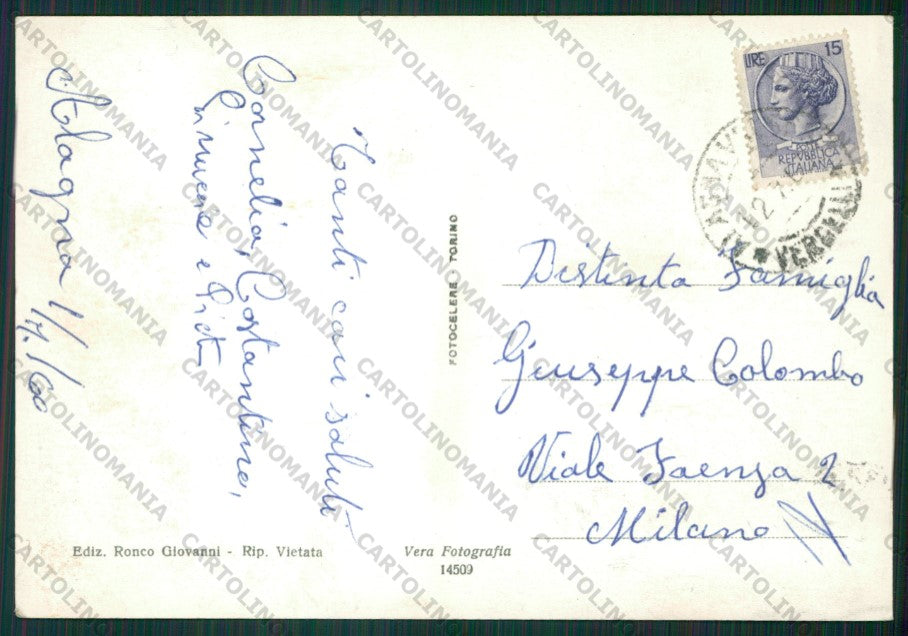 Alagna 1/7/60
Tanti cari saluti
Cornelia, Costantino,
LIRE 15
POSTE
REPVBBLICA
ITALIANA
VERCELLI
Distinta Famiglia
Giuseppe Colombo
Viale Faenza 2
Milano
FOTOCELERE TORINO
Ediz. Ronco Giovanni - Rip. Vietata
Vera Fotografia
14509
CARTOLINOMANIA